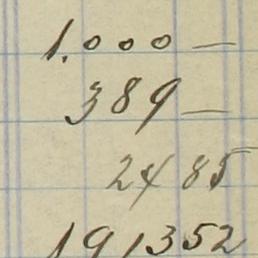 1.000 —
389 —
24 85
191352